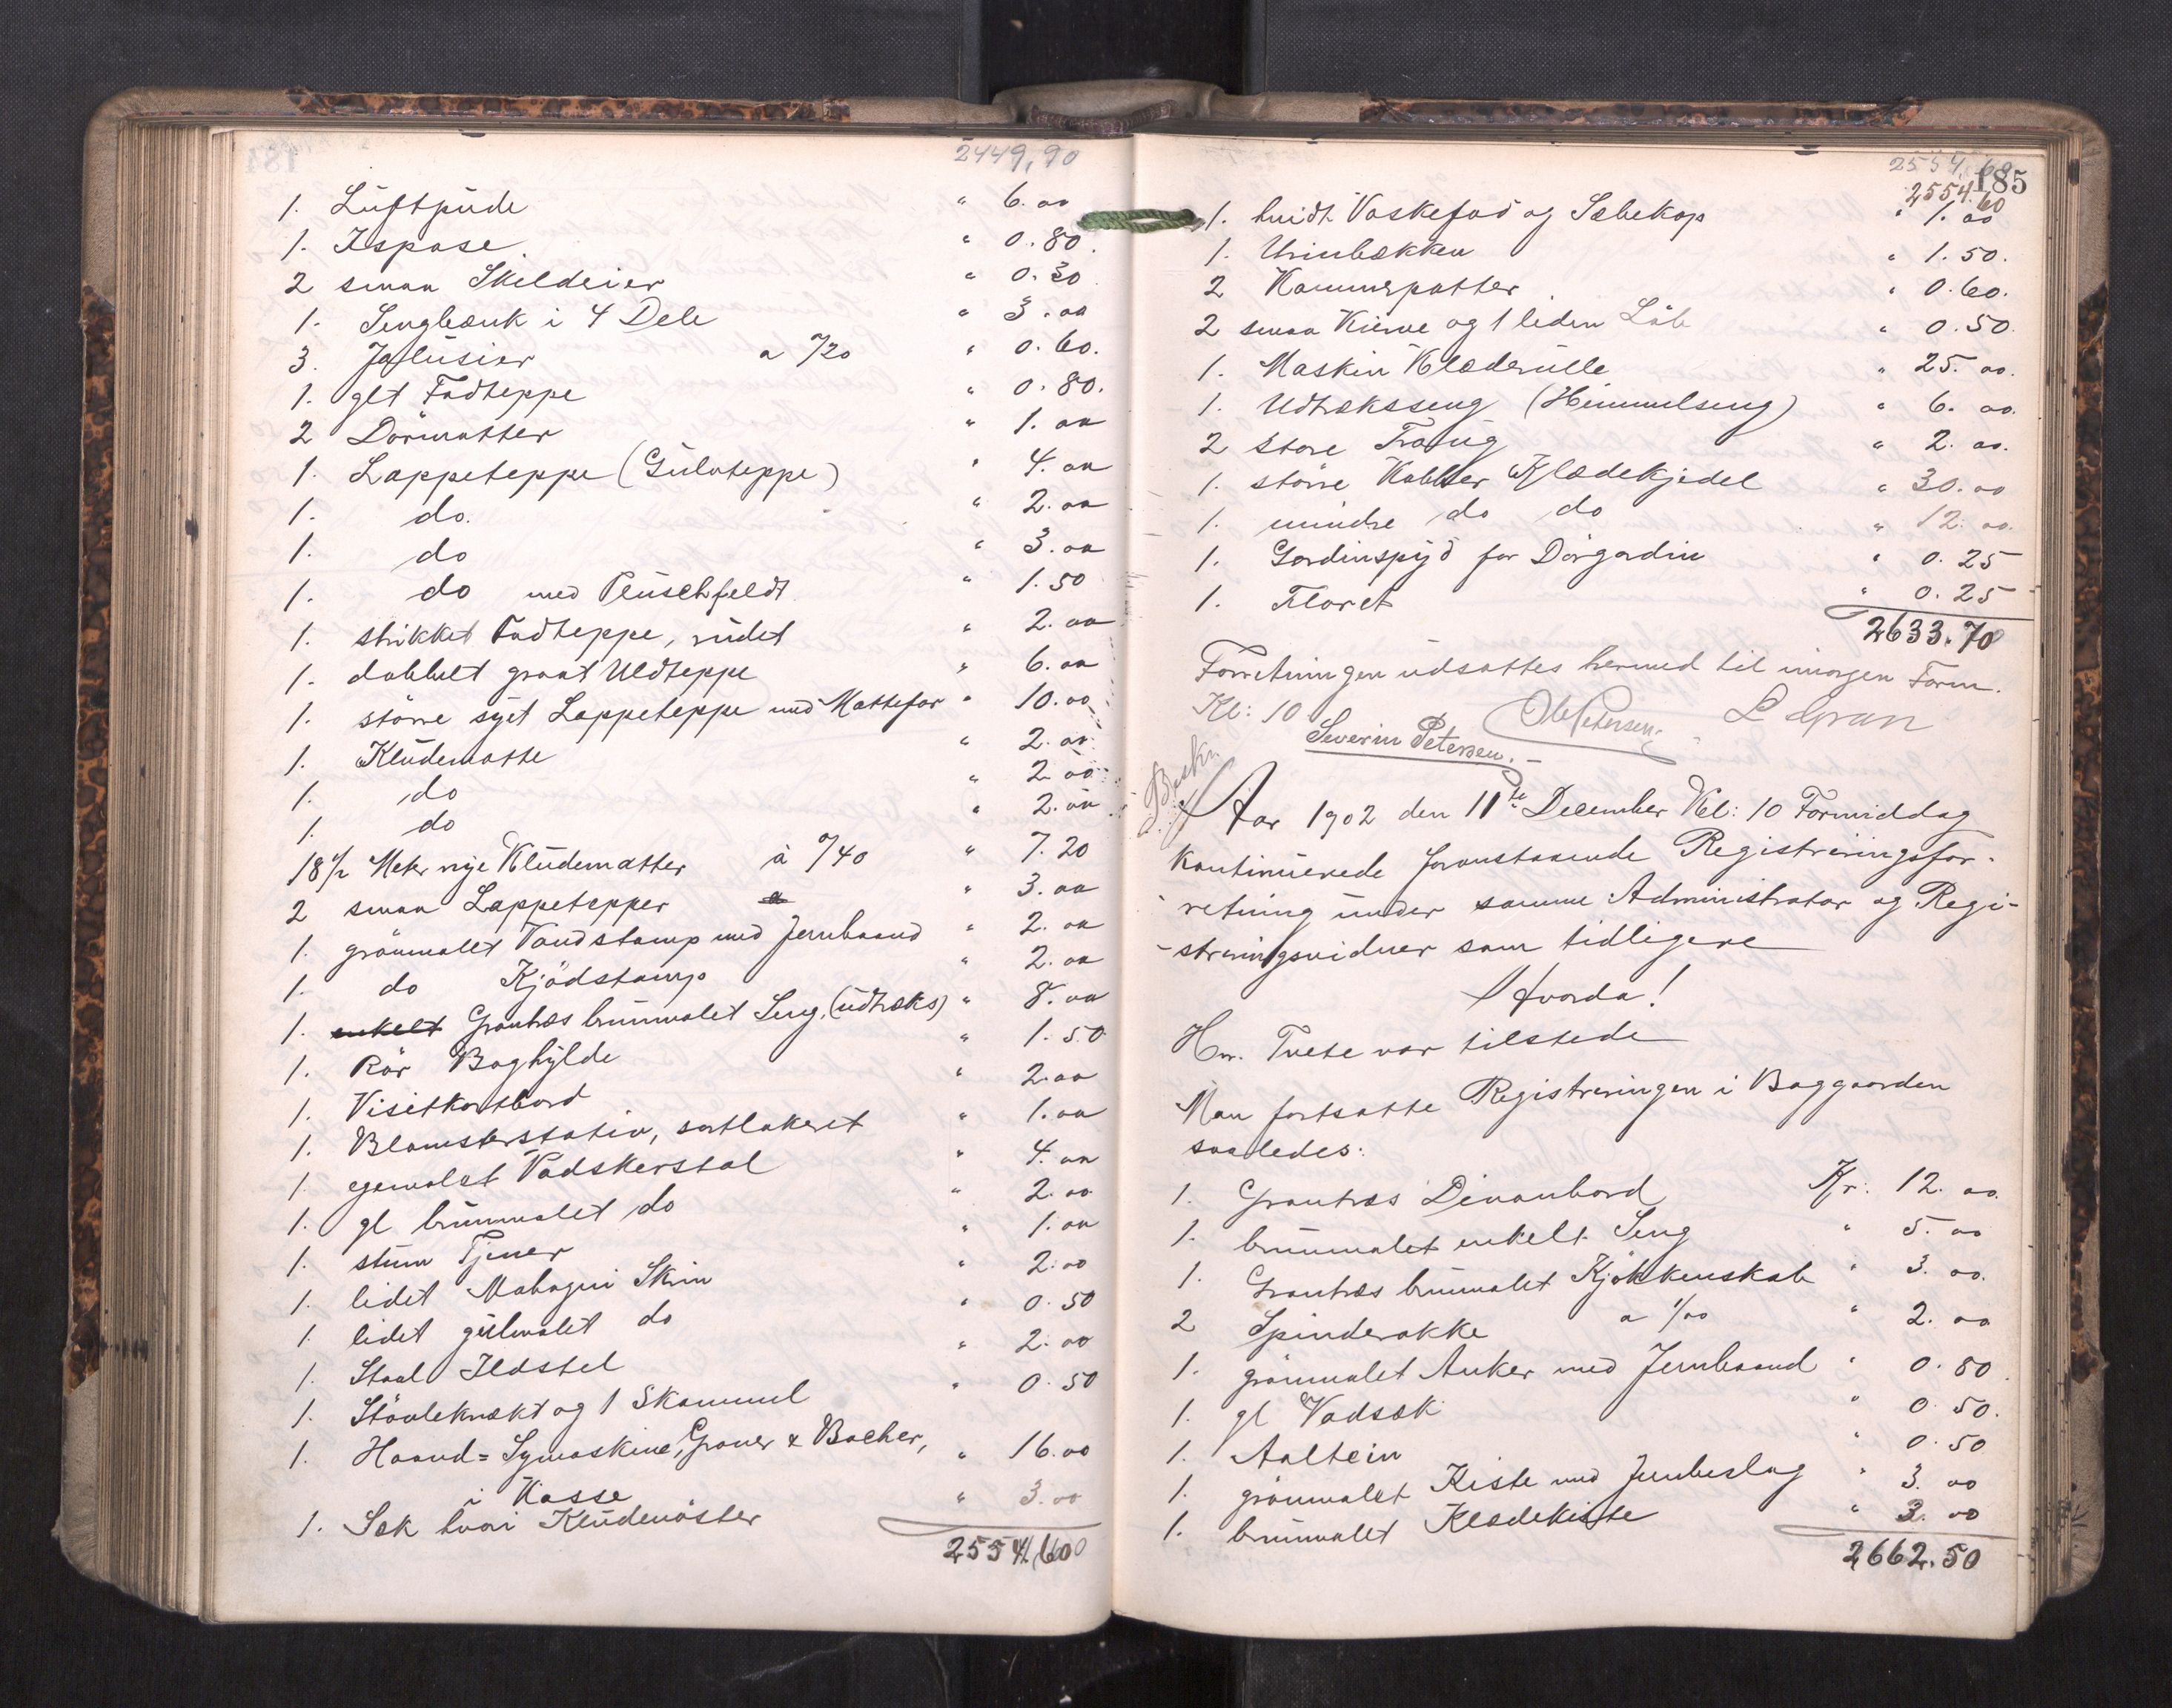 2449,90
1. Luftpude " 6.00
1. Ispose " 0.80.
2 smaa Skilderier " 0.30
1. Sengbænk i 4 Dele " 3.00
3. Jalusier a 0/20 " 0.60.
1. glt Fodteppe " 0.80.
2 Dørmatter " 1.00
1. Lappeteppe (Gulvteppe) " 4.00
1. do. " 2.00
1. do " 3.00
1. do med Pluschfeldt " 1.50
1. strikket Fodteppe, rudet " 2.00
1. dobbelt graat Uldteppe " 6.00
1. større syet Lappeteppe med Mattefor " 10.00
1. Kludematte " 2.00
1. do " 2.00
1. do " 2.00
18 1/2 Metr nye Kludematter à 0/40 " 7.20
2 smaa Lappetepper a " 3.00
1. grønmalet Vandstamp med Jernbaand " 2.00
1. do Kjødstamp " 2.00
1. enkelt Grantræs brunmalet Seng (udtræks) " 8.00
1. Rør Boghylde " 1.50
1. Visitkortbord " 2.00
1. Blomsterstativ, sortlakeret " 1.00
1. egemalet Vadskerstol " 4.00
1. gl brunmalet do " 2.00
1. stum Tjener " 1.00
1. lidet Mahogni Skrin " 2.00
1. lidet gulmalet do " 0.50
1. Staal Ildstel " 2.00
1. Støvleknækt og 1 Skammel " 0.50
1. Haand= Symaskine, Grover & Bacher,
i Kasse " 16.00
1. Sæk hvori Kludenøster " 3.00
2554,60
2554,60
185
2554.60
1. hvidt Vaskefad og Sæbekop " 1.00
1. Urinbækken " 1.50.
2 Kammepotter " 0.60.
2 smaa Kurve og 1 liden Løb " 0.50.
1. Maskin Klæderulle " 25.00.
1. Udtræksseng (Himmelseng) " 6.00.
2 store Traug " 2.00.
1. større Kobber Klædekjedel " 30.00
1. mindre do do " 12.00.
1. Gardinspyd for Dørgardin " 0.25
1. Floret " 0.25
2633.70
Forretningen udsattes hermed til imorgen Form.
Kl: 10
Severin Petersen. Ole Petersen L Gran
Beskr.
Aar 1902 den 11te December Kl: 10 Formiddag
kontinuerede foranstaaende Registreringsfor-
retning under samme Administrator og Regi-
streringsvidner som tidligere
Hvorda!
Hr. Tvete var tilstede
Man fortsatte Registreringen i Baggaarden
saaledes:
1. Grantræs Divanbord Kr. 12.00.
1. brunmalet enkelt Seng " 5.00
1. Grantræs brunmalet Kjøkkenskab " 3.00.
2 Spinderokke a 1/00 " 2.00
1. grønmalet Anker med Jernbaand " 0.80.
1. gl Vadsæk " 0.50.
1. Aaltein " 0.50
1. grønmalet Kiste med Jernbeslag " 3.00
1. brunmalet Klædekiste " 3.00
2662.50